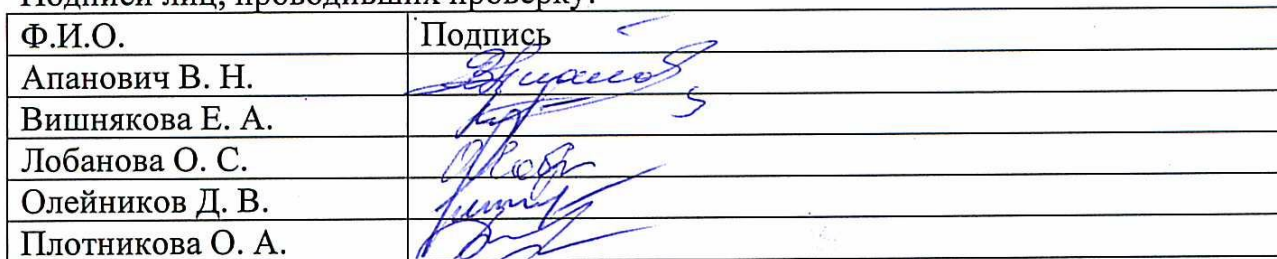 Подписи лиц, проводивших проверку:
Ф.И.О. Подпись
Апанович В. Н.
Вишнякова Е. А.
Лобанова О. С.
Олейников Д. В.
Плотникова О. А.